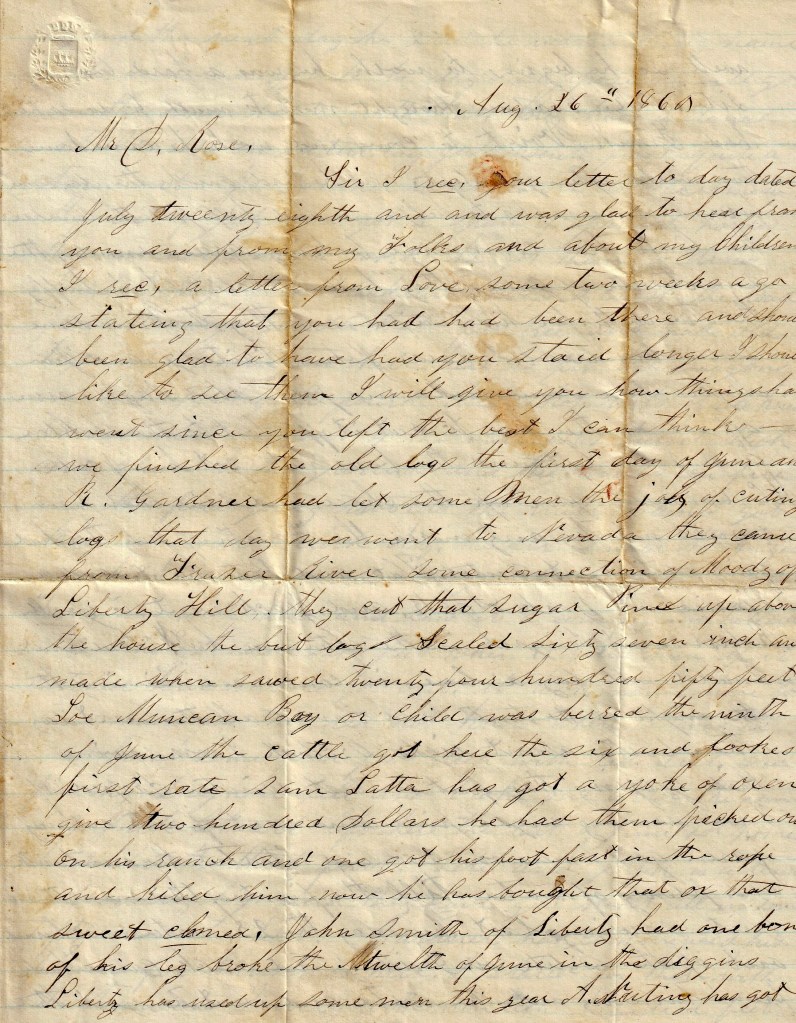 Aug. 26th 1860
Mr D. Rose,
Sir I rec, your letter to day dated
July tweenty eighth and and was glad to hear from
you and from my Folks and about my Children
I rec, a letter from Love some two weeks ago
stateing that you had had been there and should
been glad to have had you staid longer I should
like to see them I will give you how things ha
went since you left the best I can think —
we finshed the old logs the first day of June an
R. Gardner had let some men the job of cuting
logs that day wes went to Nevada they came
from Frazer River some connection of Moody of
Liberty Hill. they cut that sugar Pine up abov
the house the but log Scaled sixty seven inch an
made when sawed twenty four hundred fifty feet
Joe Muncan Boy or Child was berred the ninth
of June the cattle got here the six and lookes
first rate Sam Latta has got a yoke of oxen
give two hundred Dollars he had them picked ou
on his ranch and one got his foot fast in the rope
and kiled him now he has bought that or that
sweet
John Smith of Liberty had one bon
of his leg broke the twelth of June in the diggins
Liberty has used up some men this year A. Nuting has got